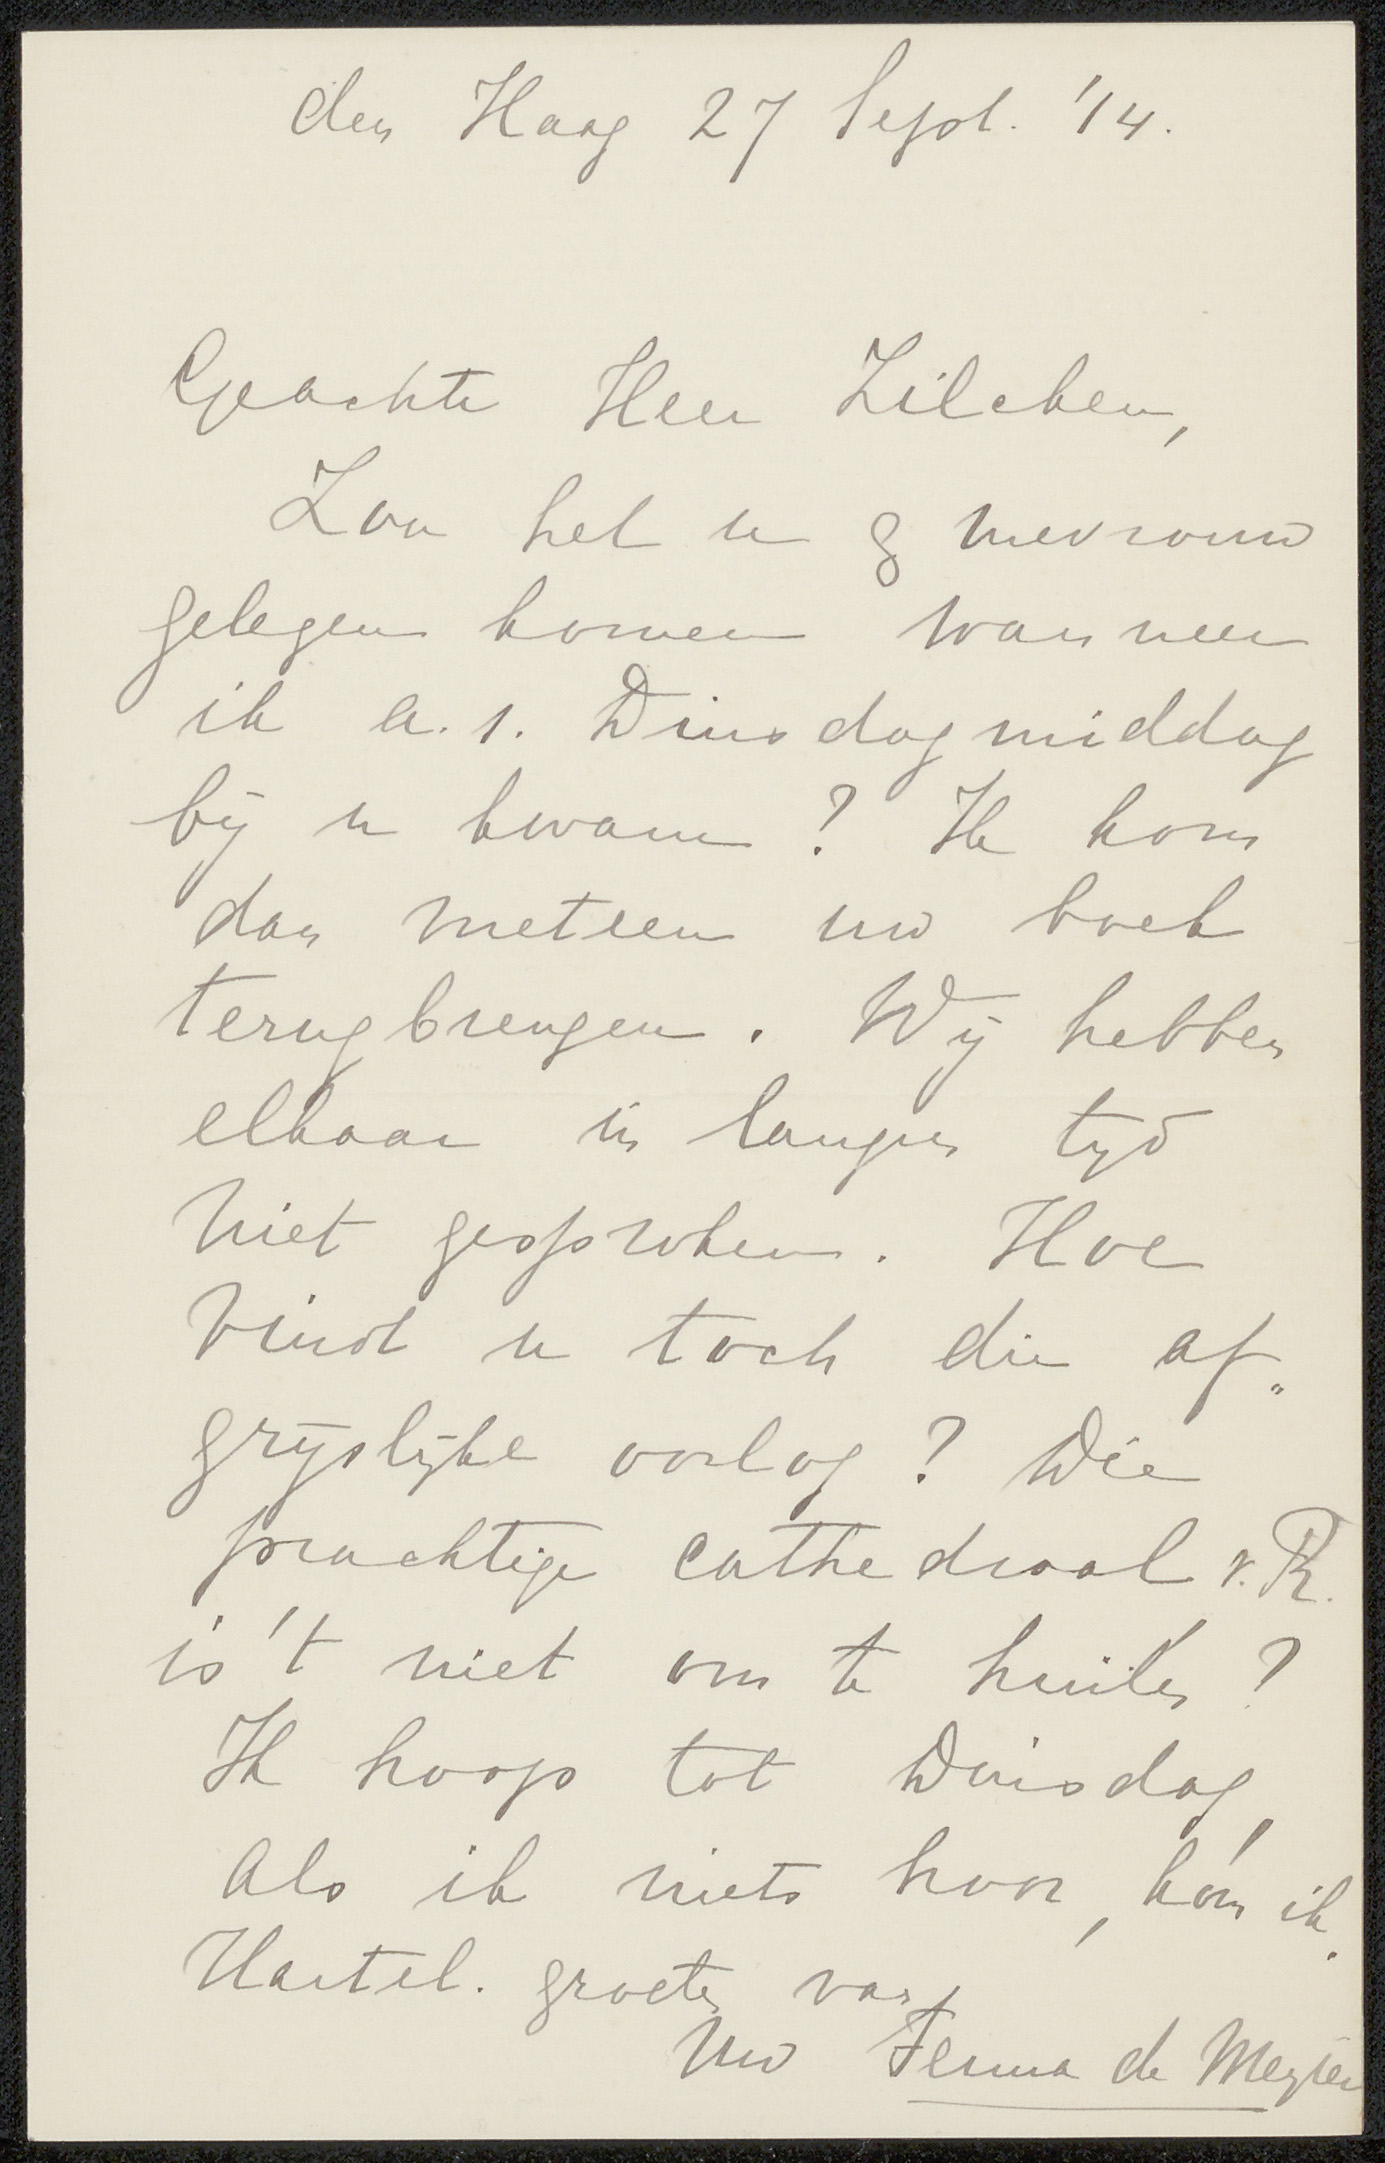 den Haag 27 Sept. '14.
Geachte Heer Zilcken,
Zou het u & mevrouw
gelegen komen wanneer
ik a.s. Dinsdagmiddag
bij u kwam? Ik kom
dan meteen uw boek
terugbrengen. Wij hebben
elkaar in langen tijd
niet gesproken. Hoe
vindt u toch die af„
grijslijke oorlog? Die
prachtige cathedraal v. R.
is 't niet om te huilen?
Ik hoop tot Dinsdag,
als ik niets hoor, kóm ik.
Hartel. groeten van
Uw Fenna de Meyier